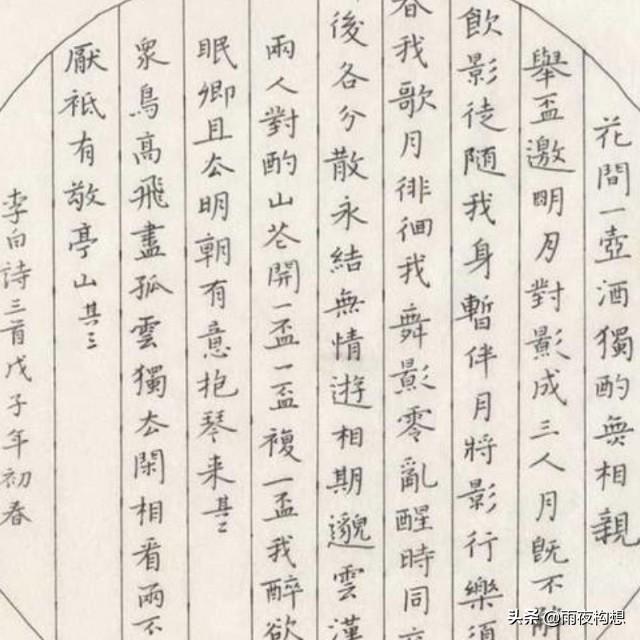 花間一壺酒獨酌無相親
舉盃邀明月對影成三人月既不
飲影徒隨我身暫伴月將影行樂須
春我歌月徘徊我舞影零亂醒時同
後各分散永結無情遊相期邈雲漢
兩人對酌山花開一盃一盃複一盃我醉欲
眠卿且去明朝有意抱琴来其二
衆鳥高飛盡孤雲獨去閑相看兩不
厭祗有敬亭山其三
李白詩三首戊子年初春
头条 @雨夜构想